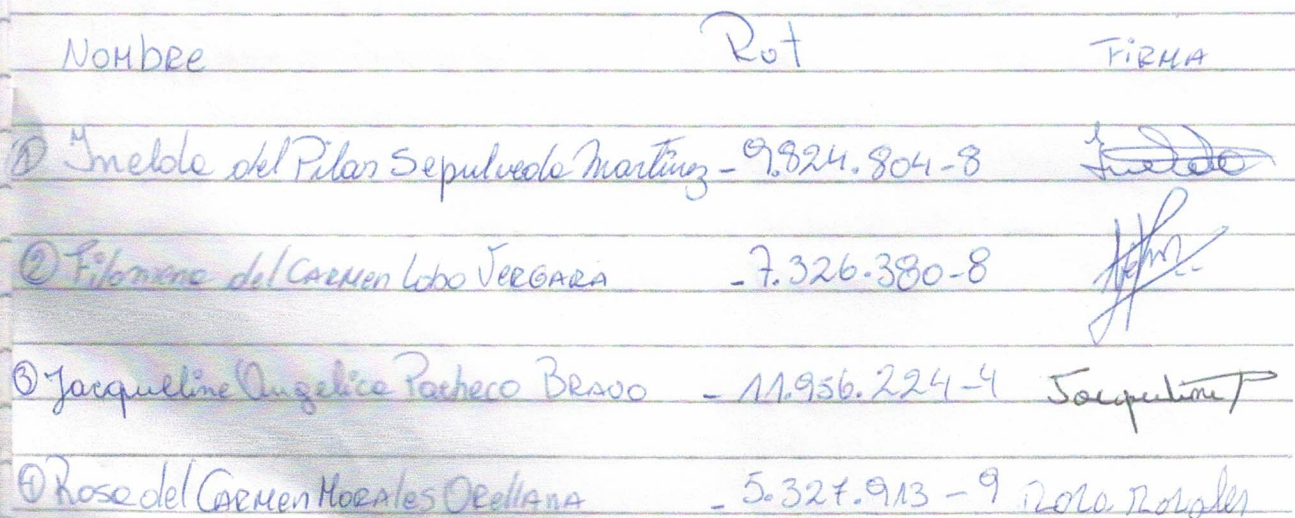 Nombre Rut Firma
① Imelda del Pilar Sepulveda Martinez - 9.824.804-8 Imelda
② Filomena del Carmen Lobo Vergara - 7.326.380-8
③ Jacqueline Angelica Pacheco Bravo - 11.956.224-4 Jacqueline P
④ Rosa del Carmen Morales Orellana - 5.327.913-9 Rosa Morales